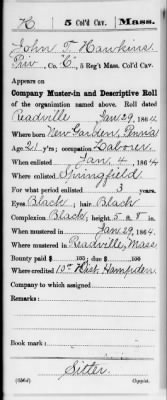 H | 5 Col'd Cav. | Mass.
John T. Hawkins
Priv., Co. "C", 5 Reg't Mass. Col'd Cav.
Appears on
Company Muster-in and Descriptive Roll
of the organization named above. Roll dated
Readville Jan 29, 1864
Where born New Garden, Penna
Age 21 y'rs; occupation Laborer
When enlisted Jan. 4, 1864
Where enlisted Springfield
For what period enlisted 3 years.
Eyes Black; hair Black
Complexion Black; height 5 ft. 8 in.
When mustered in Jan 29, 1864.
Where mustered in Readville, Mass
Bounty paid $ 100; due $ 100
Where credited 10th Dist. Hampden
Company to which assigned
Remarks:
Book mark:
Sitter
Copyist.